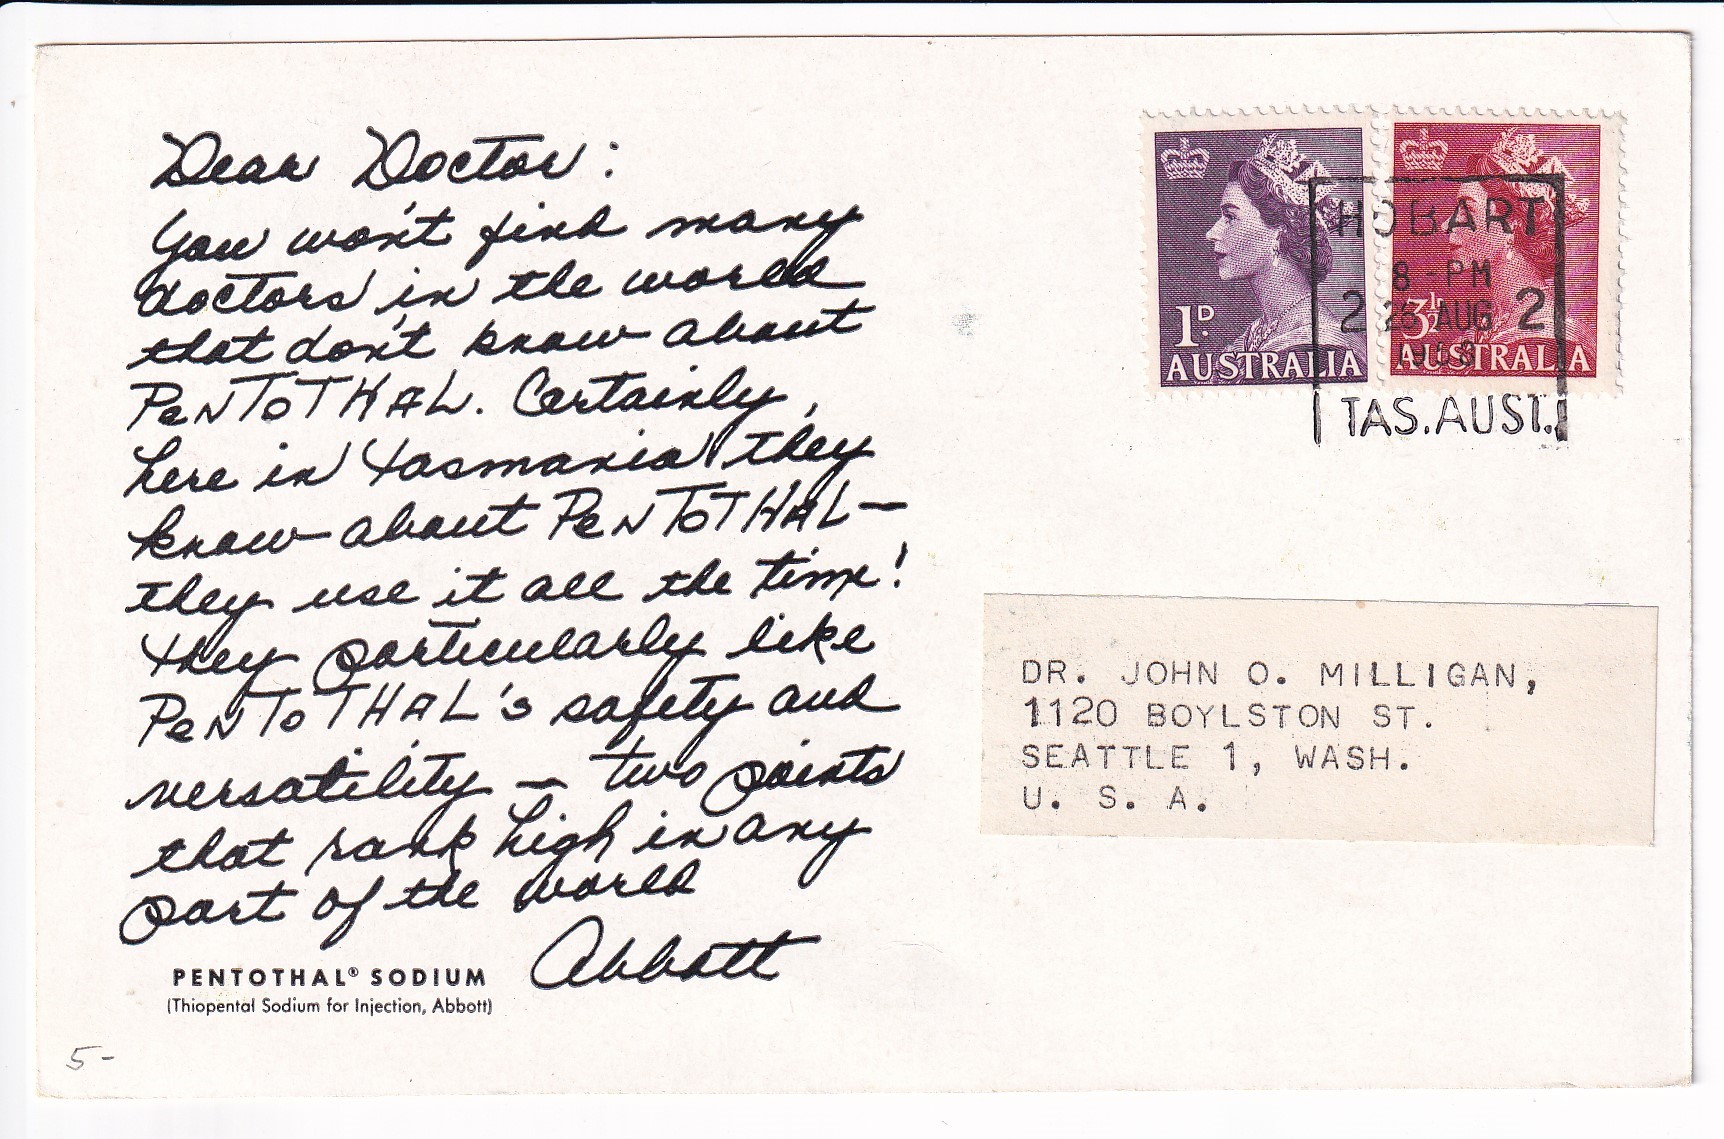 Dear Doctor:
You won't find many
doctors in the world
that don't know about
PENTOTHAL. Certainly,
here in Tasmania they
know about PENTOTHAL—
they use it all the time!
They particularly like
PENTOTHAL's safety and
versatility — two points
that rank high in any
part of the world
Abbott
PENTOTHAL® SODIUM
(Thiopental Sodium for Injection, Abbott)
5-
1D
AUSTRALIA
3½
AUSTRALIA
HOBART
8-PM
2 AUG 2
TAS.AUST.
DR. JOHN O. MILLIGAN,
1120 BOYLSTON ST.
SEATTLE 1, WASH.
U. S. A.